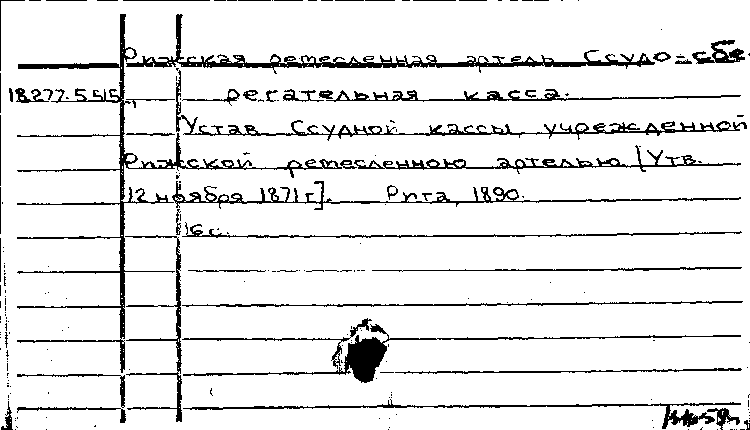 Рижская ремесленная артель Ссудо-сбе-
18.277.5.515 регательная касса.
Устав Ссудной кассы, учрежденной
Рижской ремесленною артелью [Утв.
12 ноября 1871 г]. Рига, 1890.
16 с.